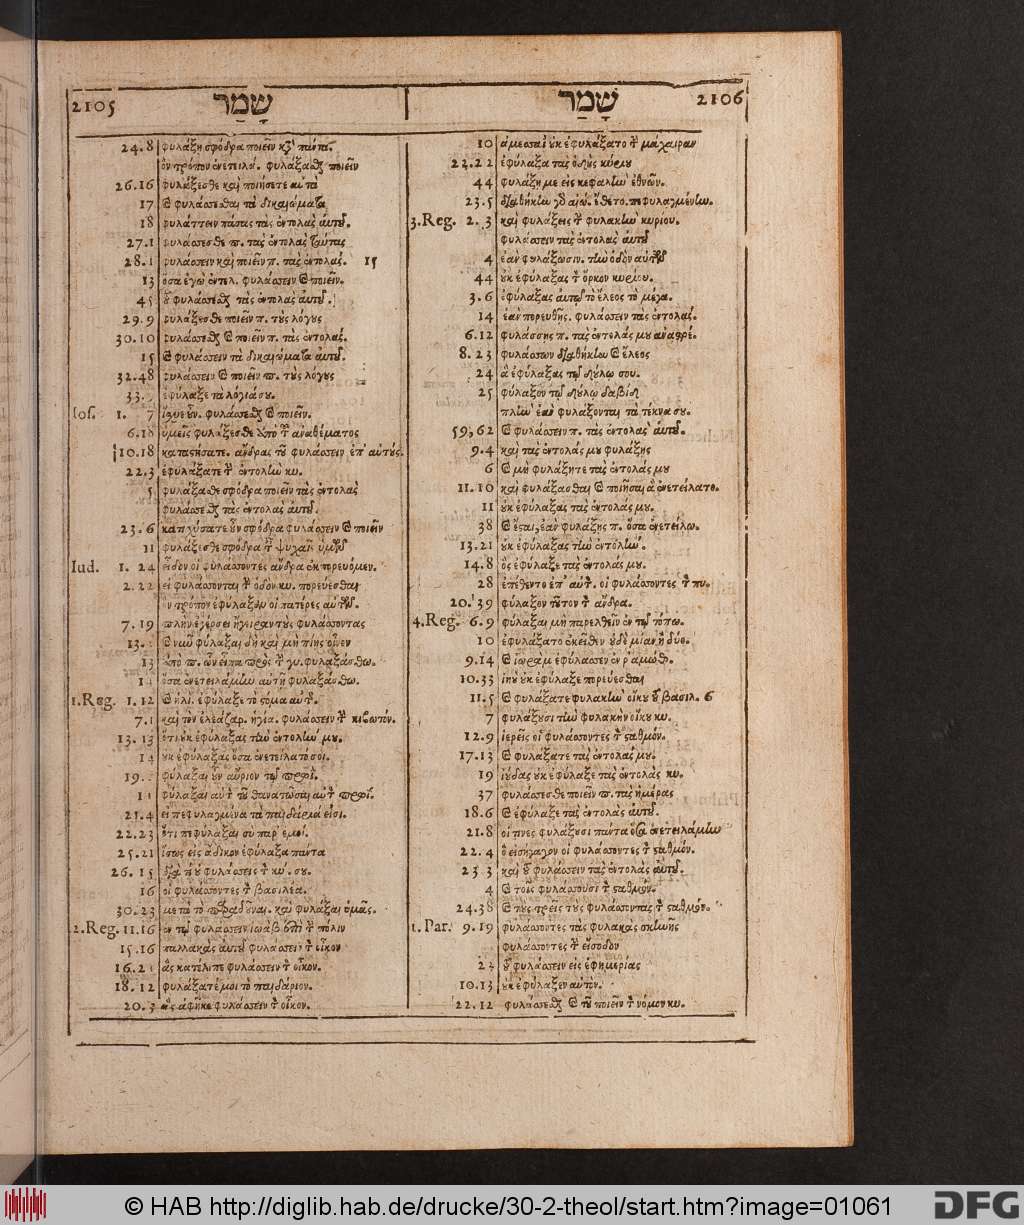 2105 שָׁמַר
24.8 φυλάξῃ σφόδρα ποιεῖν
ὃν τρόπον ἐνετειλά. φυλάξαϑ ποιεῖν
26.16 φυλάξεσθε καὶ ποιήσετε αὐτὰ
17 φυλάσσεσθαι τὰ δικαιώματα
18 φυλάττειν πάσας τὰς ἐντολὰς αὐτοῦ.
27.1 φυλάσσεσθε π. τὰς ἐντολὰς ταύτας
28.1 φυλάσσειν καὶ ποιεῖν π. τὰς ἐντολάς. 15
13 ὅσα ἐγὼ ἐντελ. φυλάσσειν ποιεῖν.
45 φυλάσσεϑ τὰς ἐντολὰς αὐτοῦ.
29.9 φυλάξεσθε ποιεῖν π. τοὺς λόγους
30.10 φυλάσσεϑ ποιεῖν π. τὰς ἐντολάς.
15 φυλάσσειν τὰ δικαιώματα αὐτοῦ.
32.48 φυλάσσειν ποιεῖν π. τοὺς λόγους
33. ἐφύλαξε τὰ λόγιά σου.
Ios. 1. 7 φυλάσσεϑ ποιεῖν.
6.18 ὑμεῖς φυλάξεσθε ἀπὸ τοῦ ἀναθέματος
10.18 καταστήσατε. ἄνδρας τοῦ φυλάσσειν ἐπ' αὐτούς.
22.3 ἐφυλάξατε τ ἐντολὴν κυ.
5 φυλάξαθε σφόδρα ποιεῖν τὰς ἐντολὰς
φυλάσσεϑ τὰς ἐντολὰς αὐτοῦ.
23.6 κατισχύσατε οὖν σφόδρα φυλάσσειν ποιεῖν
11 φυλάξεσθε σφόδρα τ ψυχὰς ὑμῶν
Iud. 1. 24 εἶδον οἱ φυλάσσοντες ἄνδρα ἐκπορευόμεν.
2.22 εἰ φυλάσσονται τ ὁδὸν κυ. πορεύεσθαι
ὃν τρόπον ἐφύλαξαν οἱ πατέρες αὐτῶν.
7.19 πλὴν ἐγέρσει ἤγειραν τοὺς φυλάσσοντας
13. νῦν φύλαξαι δὴ καὶ μὴ πίῃς οἶνον
13 ἀπὸ π. ὧν εἶπα πρὸς τ γυ. φυλαξάσθω.
ὅσα ἐνετειλάμην αὐτῇ φυλαξάσθω.
1.Reg. 1.12 ἡλί. ἐφύλαξε τὸ στόμα αὐτ.
7.1 καὶ τὸν ἐλεάζαρ. ἡγια. φυλάσσειν τ κιβωτόν.
13.13 ὅτι οὐκ ἐφύλαξας τὴν ἐντολήν μου.
14 οὐκ ἐφύλαξας ὅσα ἐνετείλατό σοι.
19. φύλαξαι οὖν αὔριον τῷ πρωῒ.
11 φύλαξαι αὐτ τοῦ θανατῶσαι αὐτ πρωΐ.
21.4 εἰ πεφυλαγμένα τὰ παιδάριά εἰσι.
22.23 ὅτι πεφύλαξαι σὺ παρ' ἐμοί.
25.21 ἴσως εἰς ἄδικον ἐφύλαξα πάντα
26.15 διὰ τί οὐ φυλάσσεις τ κύ. σου.
16 οἱ φυλάσσοντες τ βασιλέα.
30.23 μετὰ τὸ παραδοῦναι. καὶ φυλάξαι ὑμᾶς.
2.Reg. 11.16 ἐν τῷ φυλάσσειν ἰωὰβ ἐπὶ τ πόλιν
15.16 παλλακὰς αὐτοῦ φυλάσσειν τ οἶκον
16.2 ἃς κατέλιπε φυλάσσειν τ οἶκον.
18.12 φυλάξατέ μοι τὸ παιδάριον.
20.3 ἃς ἀφῆκε φυλάσσειν τ οἶκον.
שָׁמַר 2106
10 ἀμεσσαῒ οὐκ ἐφυλάξατο τ μάχαιραν
22.22 ἐφύλαξα τὰς ὁδοὺς κυρίου
44 φυλάξῃ με εἰς κεφαλὴν ἐθνῶν.
23.5 διαθήκην γὰ αἰω. ἔθετο. πεφυλαγμένην.
3.Reg. 2. 3 καὶ φυλάξεις τ φυλακὴν κυρίου.
φυλάσσειν τὰς ἐντολὰς αὐτοῦ
4 ἐὰν φυλάξωσιν. τὴν ὁδὸν αὐτῶν
44 οὐκ ἐφύλαξας τ ὅρκον κυρίου.
3.6 ἐφύλαξας αὐτῷ τὸ ἔλεος τὸ μέγα.
14 ἐὰν πορευθῇς. φυλάσσειν τὰς ἐντολάς.
6.12 φυλάσσῃς π. τὰς ἐντολάς μου ἀναστρέ.
8.23 φυλάσσων διαθήκην ἔλεος
24 ἃ ἐφύλαξας τῷ δούλῳ σου.
25 φύλαξον τῷ δούλῳ δαβὶδ
πλὴν ἐὰν φυλάξονται τὰ τέκνα σου.
59,62 φυλάσσειν π. τὰς ἐντολὰς αὐτοῦ.
9.4 καὶ τὰς ἐντολάς μου φυλάξῃς
6 μὴ φυλάξητε τὰς ἐντολάς μου
11.10 καὶ φυλάξασθαι ποιῆσαι ἃ ἐνετείλατο.
11 οὐκ ἐφύλαξας τὰς ἐντολάς μου.
38 ἔσται, ἐὰν φυλάξῃς π. ὅσα ἐνετείλω.
13.21 οὐκ ἐφύλαξας τὴν ἐντολήν.
14.8 ὃς ἐφύλαξε τὰς ἐντολάς μου.
28 ἐπέθεντο ἐπ' αὐτ. οἱ φυλάσσοντες τ πυ.
20.39 φύλαξον τοῦτον τ ἄνδρα.
4.Reg. 6.9 φύλαξαι μὴ παρελθεῖν ἐν τῷ τόπῳ.
10 ἐφυλάξατο ἐκεῖθεν οὐδὲ μίαν ἢ δύο.
9.14 ἰωρὰμ ἐφύλασσεν ἐν ῥαμώθ.
10.33 ἰηοὺ οὐκ ἐφύλαξε πορεύεσθαι
11.5 φυλάξατε φυλακὴν οἴκου τοῦ βασιλ. 6
7 φυλάξουσι τὴν φυλακὴν οἴκου κυ.
12.9 ἱερεῖς οἱ φυλάσσοντες τ σταθμόν.
17.13 φυλάξατε τὰς ἐντολάς μου.
19 ἰούδας οὐκ ἐφύλαξε τὰς ἐντολὰς κυ.
37 φυλάσσεσθε ποιεῖν π. τὰς ἡμέρας
18.6 ἐφύλαξε τὰς ἐντολὰς αὐτοῦ.
21.8 οἵτινες φυλάξουσι πάντα ὅσα ἐνετειλάμην
22.4 ὃ εἰσήγαγον οἱ φυλάσσοντες τ σταθμόν.
23 3 καὶ τοῦ φυλάσσειν τὰς ἐντολὰς αὐτοῦ.
4 τοῖς φυλάσσουσι τ σταθμόν.
24.38 τοὺς τρεῖς τοὺς φυλάσσοντας τ σταθμόν.
1.Par. 9.19 φυλάσσοντες τὰς φυλακὰς σκηνῆς
φυλάσσοντες τ εἴσοδον
23 τοῦ φυλάσσειν εἰς ἐφημερίας
10.13 οὐκ ἐφύλαξεν αὐτόν.
22.12 φυλάσσεϑ τοῦ ποιεῖν τ νόμον κυ.
© HAB http://diglib.hab.de/drucke/30-2-theol/start.htm?image=01061
DFG